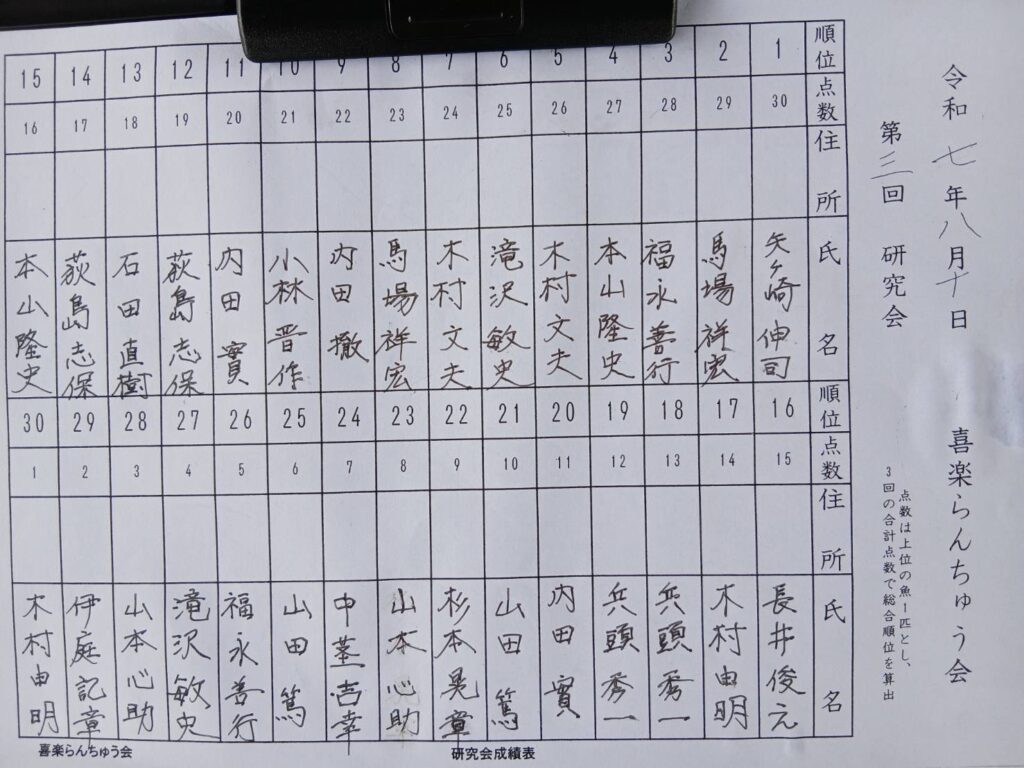 令和 七 年 八 月 十 日 喜楽らんちゅう会
第 三 回 研究会
点数は上位の魚1匹とし、
3回の合計点数で総合順位を算出
順位 点数 住所 氏名
1 30 矢ヶ崎 伸司
2 29 馬場 祥宏
3 28 福永善行
4 27 本山隆史
5 26 木村文夫
6 25 滝沢敏史
7 24 木村文夫
8 23 馬場祥宏
9 22 内田 撤
10 21 小林晋作
11 20 内田 實
12 19 荻島志保
13 18 石田直樹
14 17 荻島志保
15 16 本山隆史
順位 点数 住所 氏名
16 15 長井俊之
17 14 木村由明
18 13 兵頭秀一
19 12 兵頭秀一
20 11 内田 實
21 10 山田 篤
22 9 杉本晃章
23 8 山本心助
24 7 中茎吉幸
25 6 山田 篤
26 5 福永善行
27 4 滝沢敏史
28 3 山本心助
29 2 伊庭記章
30 1 木村由明
喜楽らんちゅう会
研究会成績表